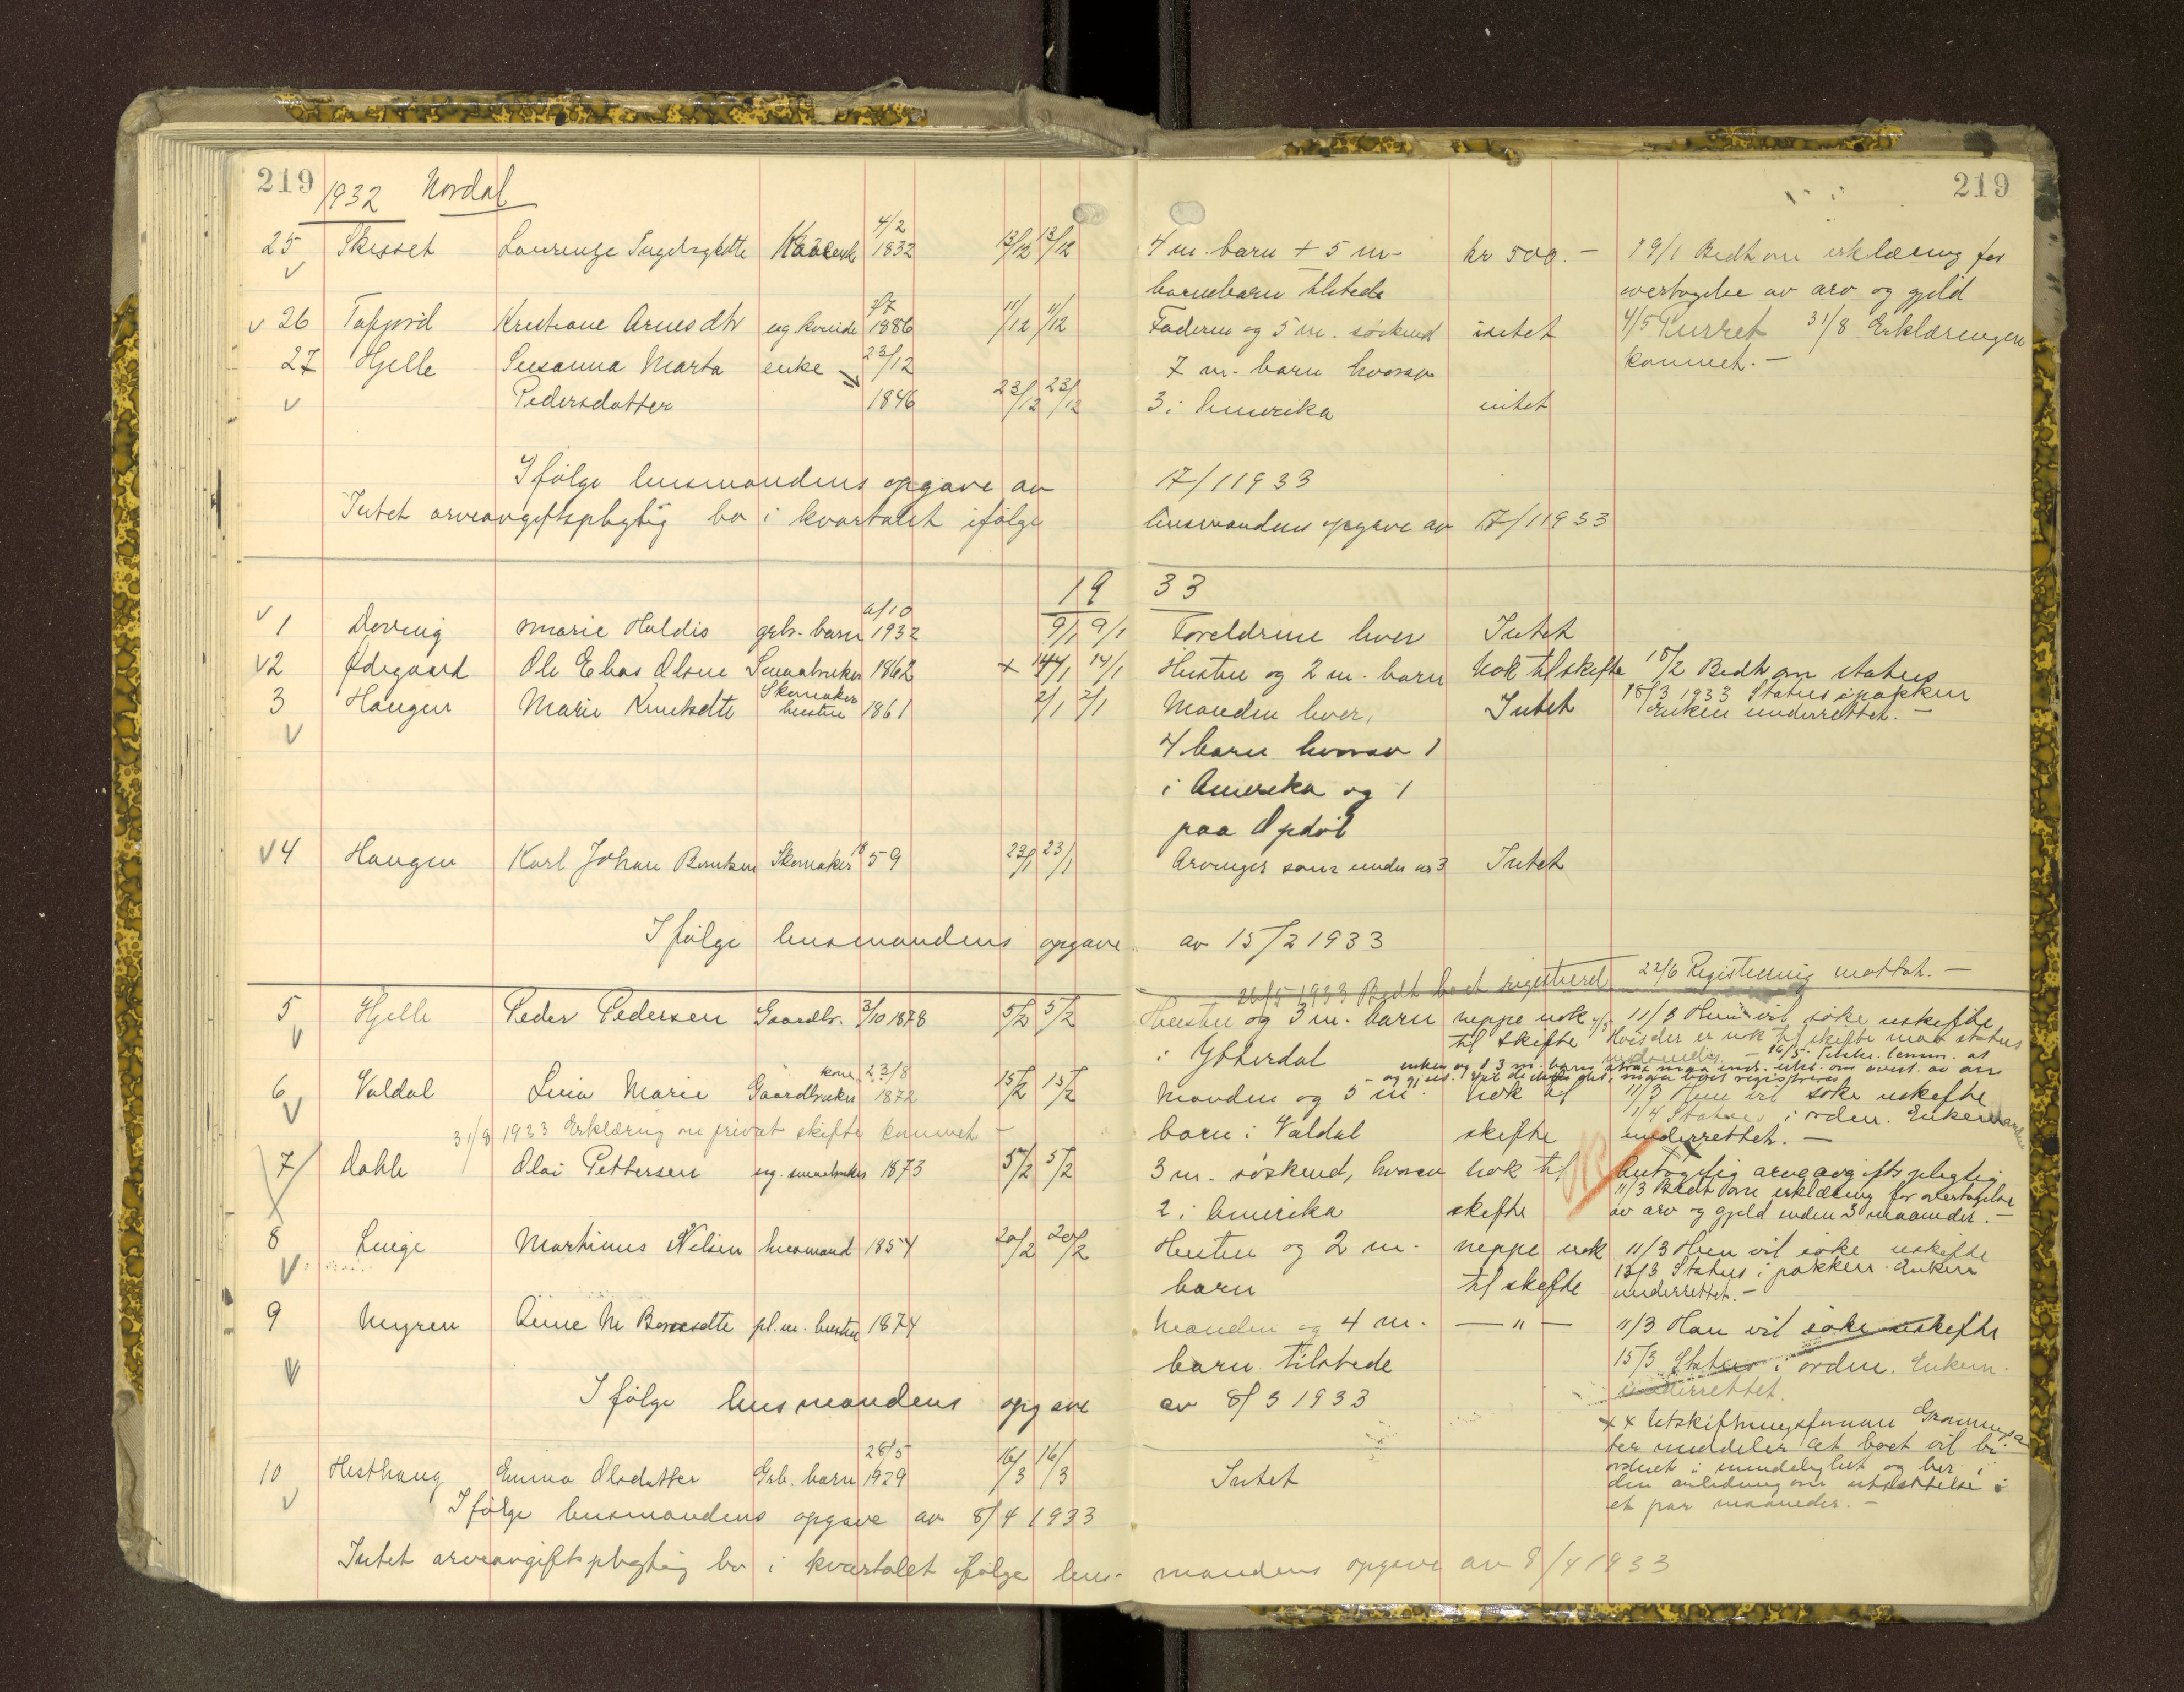 219 219
1932 Nordal
25 Skisset Laurense 4/2 1832 13/12 13/12 4 m. barn + 5 m- kr 500.- 19/1 Bedt om erklæring for
barnebarn tilstede overtagelse av arv og gjeld
v 26 Tafjord Kristiane Arnesdtr ug. kvinde 1886 11/12 11/12 Faderen og 5 m. søskend intet 4/5 Purret 31/8 Erklæringen
27 Hjelle Susanna Marta enke 23/12 7 m. barn hvorav kommet.-
v Pedersdatter 1846 23/12 23/12 3 i Amerika intet
Ifølge lensmandens opgave av 17/1 1933
Intet arveavgiftspligtig bo i kvartalet ifølge lensmandens opgave av 17/1 1933
1933
v 1 Døving Marie Haldis grb. barn 1932 9/1 9/1 Foreldrene lever Intet
v2 Ødegaard Ole Elias Olsen Smaabruker 1862 x 14/1 14/1 Hustru og 2 m. barn nok til skifte 18/2 Bedt om status
3 Haugen Marie Knutsdtr Skomaker hustru 1861 2/1 2/1 Manden lever, Intet 18/3 1933 Status i pakken
Enken underrettet.-
v 4 barn hvorav 1
i Amerika og 1
paa Opdøl
v4 Haugen Karl Johan Berntsen Skomaker 1859 23/1 23/1 Arvinger som under nr 3 Intet
Ifølge lensmandens opgave av 15/2 1933
26/5 1933 Bedt boet registreret 22/6 Registrering mottat.-
5 Hjelle Peder Pedersen Gaardbr. 3/10 1878 5/2 5/2 Hustru og 3 m. barn neppe nok 11/3 Hun vil søke uskifte
v i Ytterdal til skifte Hvis der er nok til skifte maa status
6 Valdal Lina Marie kone Gaardbruker 23/8 1872 15/2 15/2 Manden og 5 m. nok til 11/3 Hun vil søke uskifte
v 31/8 1933 Erklæring om privat skifte kommet - barn i Valdal skifte 1/4 Status i orden. Enkemanden
underrettet.-
7 Dahle Olai Pettersen ug. smaabruker 1873 5/2 5/2 3 m. søskend, hvorav nok til Antagelig arveavgiftspligtig
2 i Amerika skifte 11/3 Bedt om erklæring for overtagelse
av arv og gjeld inden 3 maaneder.-
8 Linge Martinus Nilsen husmand 1854 20/2 20/2 Hustru og 2 m. neppe nok 11/3 Hun vil søke uskifte
v barn til skifte 13/3 Status i pakken. Enken
underrettet.-
9 Myren Anne M pl. m. hustru 1874 Manden og 4 m. - " - 11/3 Han vil søke uskifte
v barn tilstede 15/3 Status i orden. Enkem.
underrettet.
Ifølge lensmandens opgave av 8/3 1933
x x Utskiftningsformann
ter meddeler at boet vil bli
ordnet i mindelighet og ber i
den anledning om utsættelse i
et par maaneder.-
10 Hesthaug Emma Olsdatter Grb. barn 28/5 1929 16/3 16/3 Intet
v Ifølge lensmandens opgave av 8/4 1933
Intet arveavgiftspligtig bo i kvartalet ifølge lens- mandens opgave av 8/4 1933